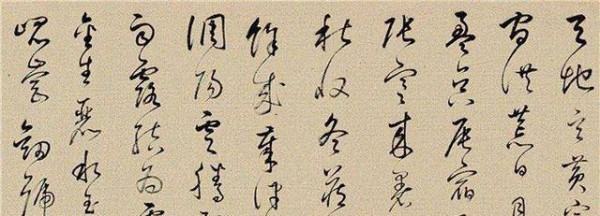 天地玄黃宇
宙洪荒日月
盈昃辰宿
張寒來暑
秋收冬藏
餘成歲律
調陽雲騰
雨露結為霜
金生麗水玉
崐崗劍號